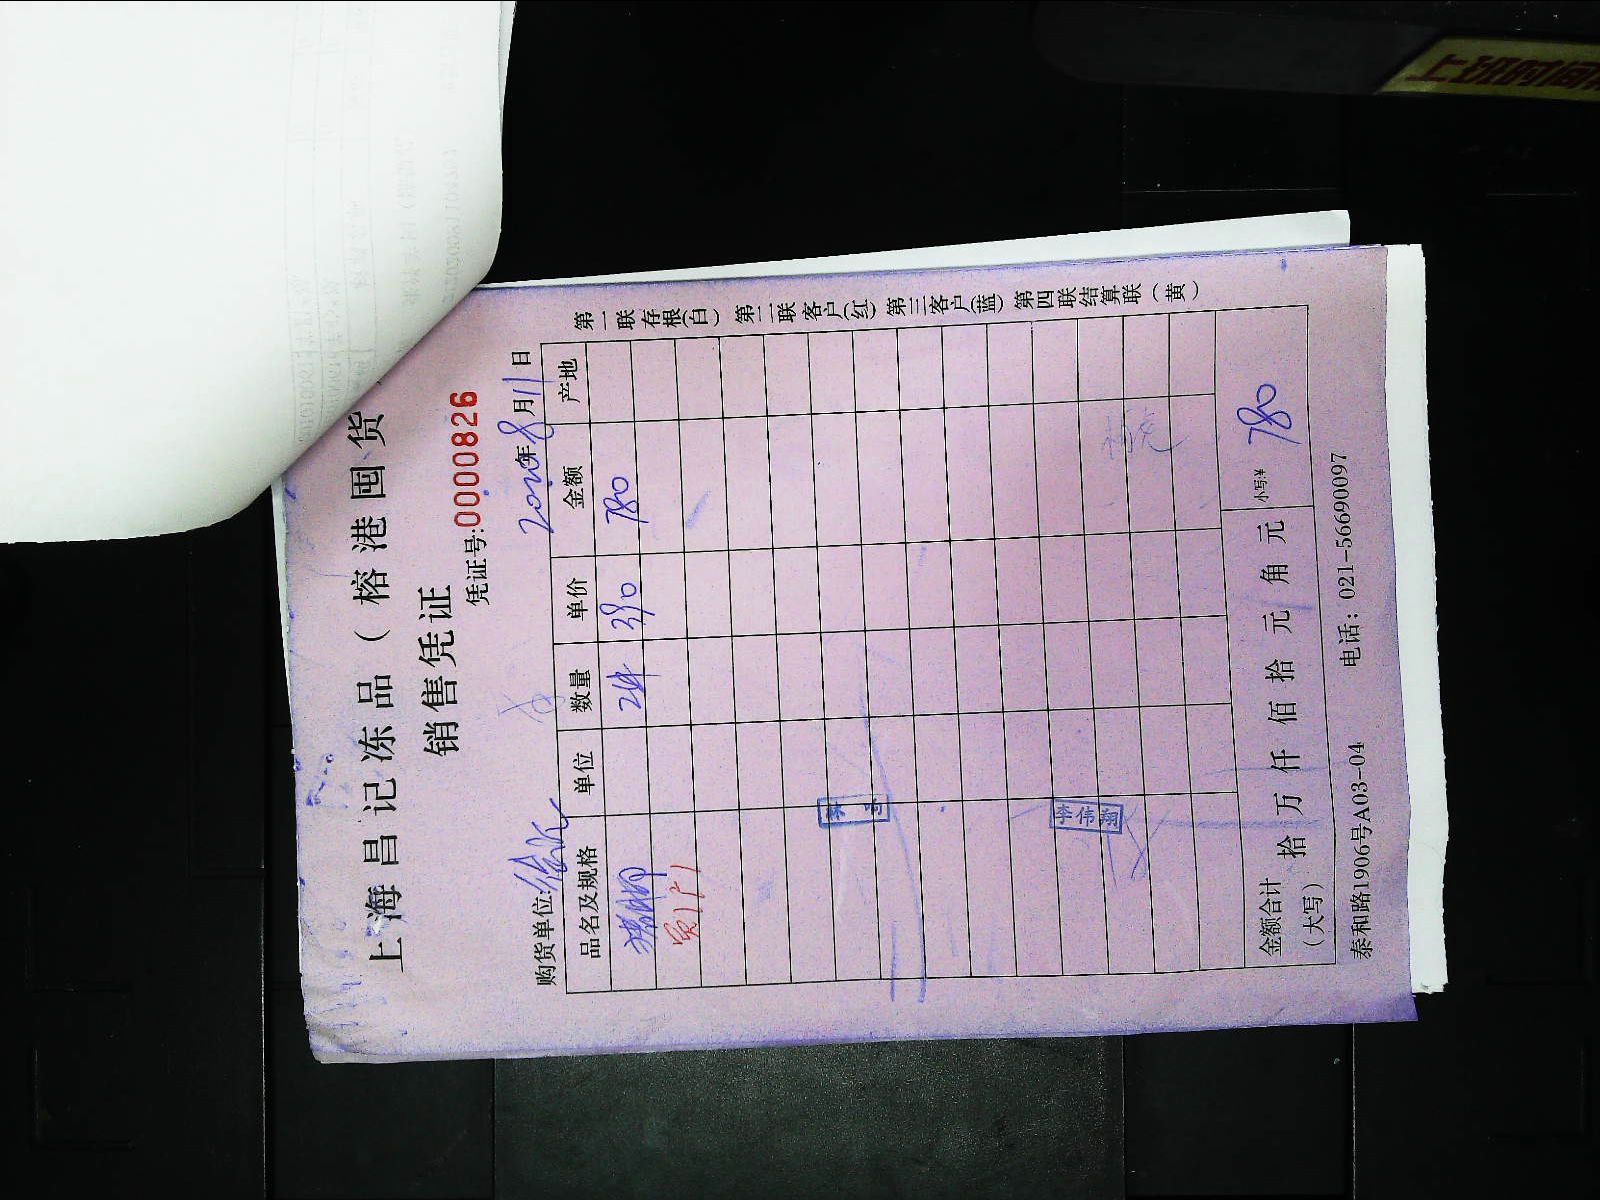 上海昌记冻品（榕港囤货
销售凭证
凭证号:0000826
购货单位: 2020年8月11日
品名及规格 单位 数量 单价 金额 产地
猪脚 2件 390 780
李伟翔
金额合计（大写） 拾 万 仟 佰 拾 元 角 元 小写:¥ 780
泰和路1906号A03-04 电话：021-56690097
第一联存根(白) 第二联客户(红) 第三客户(蓝) 第四联结算联（黄）
上班时间